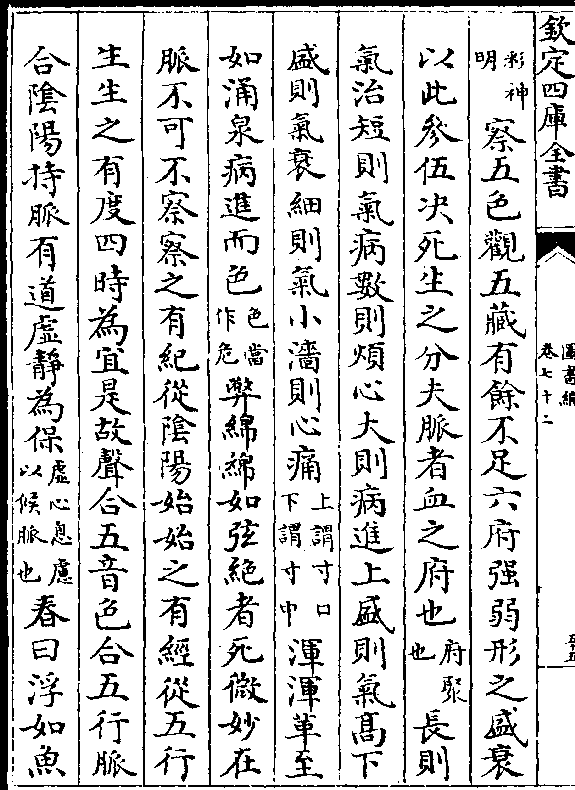 欽定四庫全書
圖書編
卷七十二
彩神明察五色觀五藏有餘不足六府强弱形之盛衰
以此參伍决死生之分夫脈者血之府也府聚也長則
氣治短則氣病數則煩心大則病進上盛則氣髙下
盛則氣衰細則氣小濇則心痛上謂寸口下謂寸中渾渾革至
如涌泉病進而色色當作危弊綿綿如弦絶者死微妙在
脈不可不察察之有紀從隂陽始始之有經從五行
生生之有度四時為宜是故聲合五音色合五行脈
合隂陽持脈有道虛靜為保虛心息慮以候脈也春日浮如魚